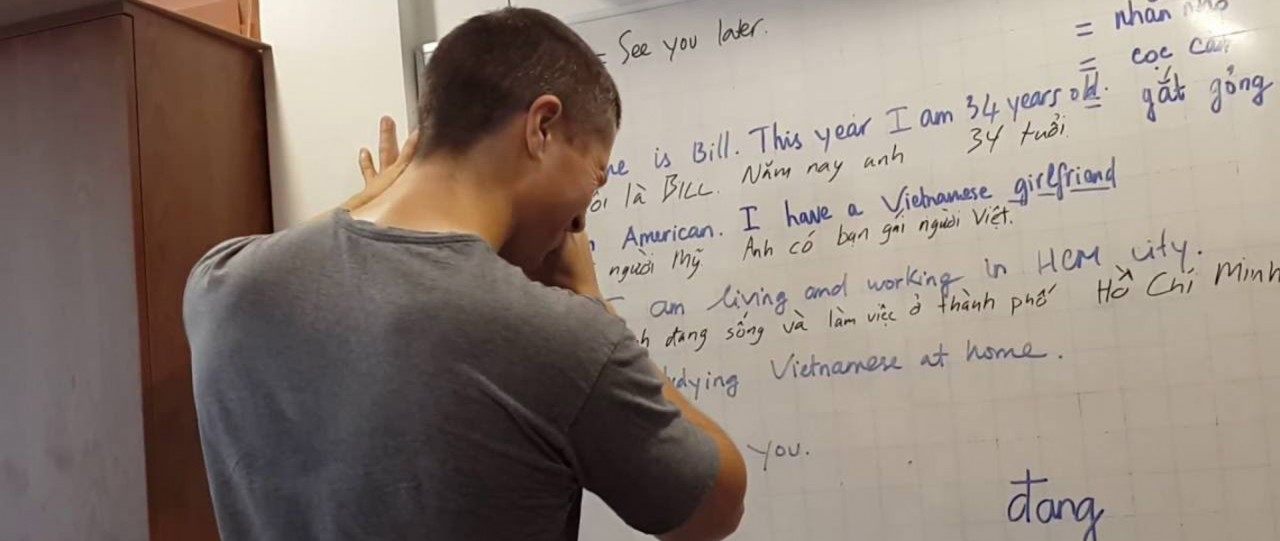 = See you later.
= nhăn nhó
= cọc cằn
gắt gỏng
is Bill. This year I am 34 years old.
là BILL. Năm nay anh 34 tuổi.
American. I have a Vietnamese girlfriend
người Mỹ Anh có bạn gái người Việt.
am living and working in HCM city.
đang sống và làm việc ở thành phố Hồ Chí Minh
Vietnamese at home.
you.
đang